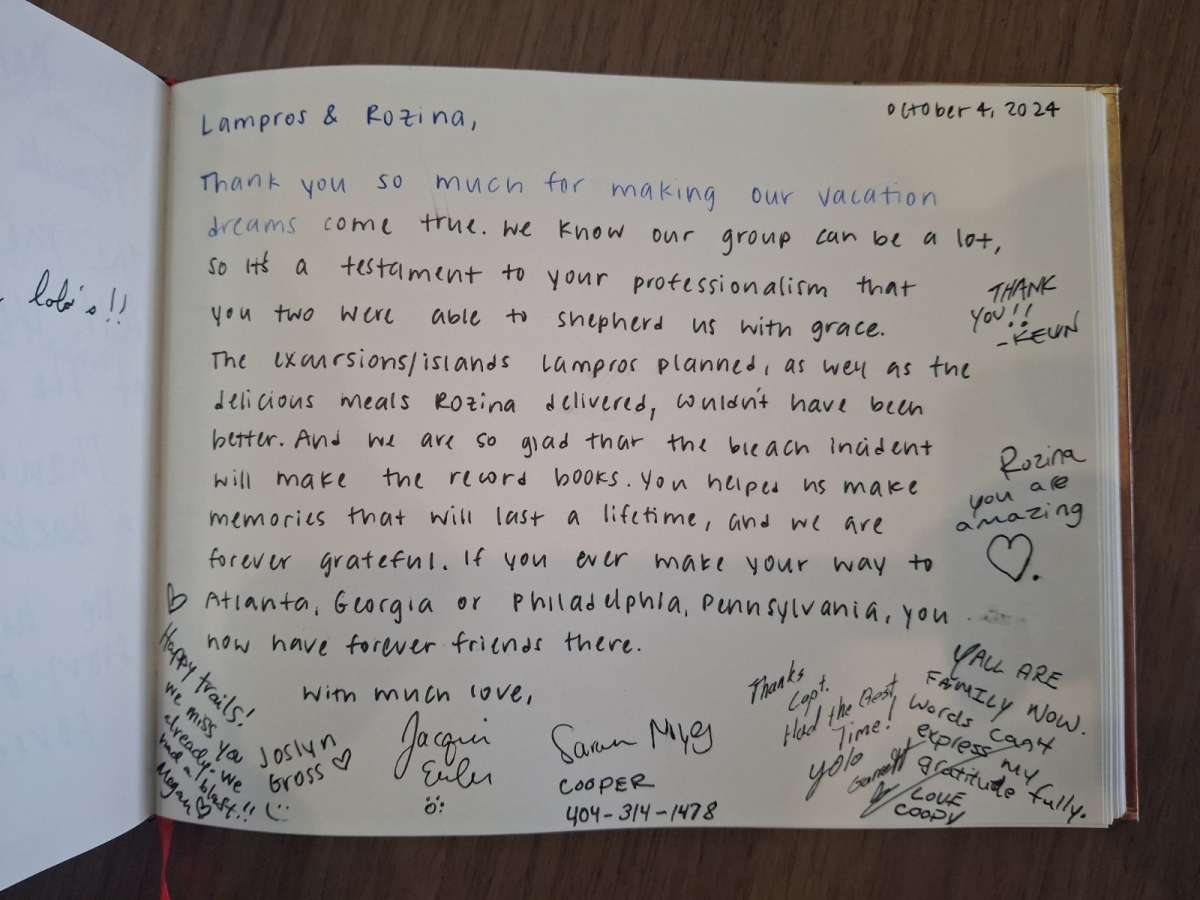 lolo's!!
October 4, 2024
Lampros & Rozina,
Thank you so much for making our vacation
dreams come true. We know our group can be a lot,
so it's a testament to your professionalism that
you two were able to shepherd us with grace.
The excursions/islands Lampros planned, as well as the
delicious meals Rozina delivered, couldn't have been
better. And we are so glad that the bleach incident
will make the record books. You helped us make
memories that will last a lifetime, and we are
forever grateful. If you ever make your way to
Atlanta, Georgia or Philadelphia, Pennsylvania, you
now have forever friends there.
With much love,
THANK
YOU!!
-KEVIN
Rozina
you are
amazing
Happy trails!
we miss you
already. we
had a blast!!
Megan
Joslyn
Gross
Jacqui
Sarah
COOPER
404-314-1478
Thanks
Capt.
Had the Best
Time!
YOLO
Garrett
YALL ARE
FAMILY NOW.
Words can't
express my
gratitude fully.
LOVE
COOPY